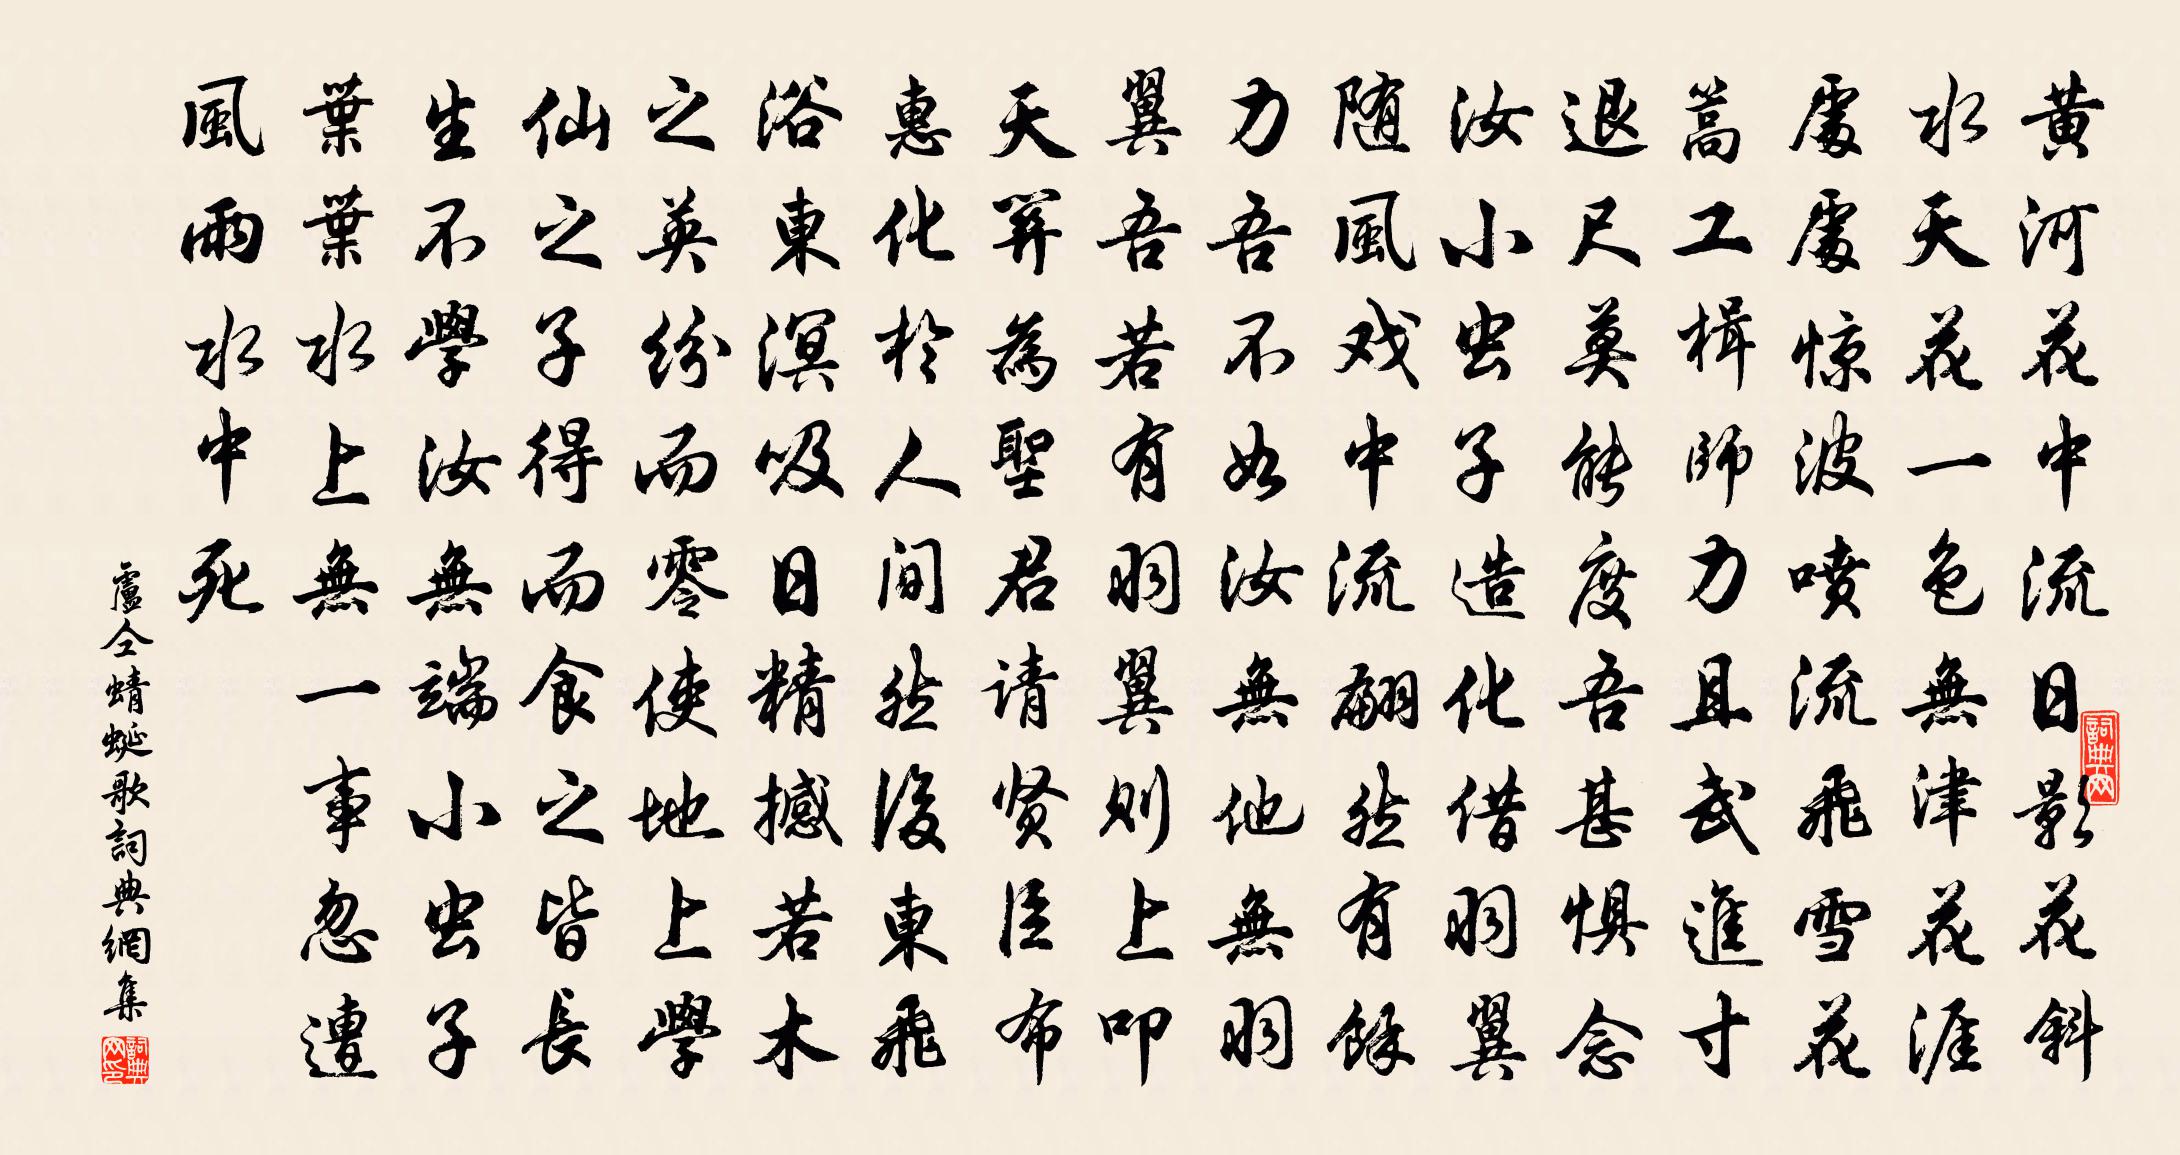 黄河花中流日影花斜
水天花一色無津花涯
處處惊波喷流飛雪花
篙工楫師力且武進寸
退尺莫能度吾甚惧念
汝小虫子造化借羽翼
随風戏中流翩然有餘
力吾不如汝無他無羽
翼吾若有羽翼则上叩
天關為聖君请贤臣布
惠化於人間然後東飛
浴東溟吸日精撼若木
之英紛而零使地上學
仙之子得而食之皆長
生不學汝無端小虫子
葉葉水上無一事忽遭
風雨水中死
盧仝蜻蜓歌詞典網集
詞典网
詞典网印